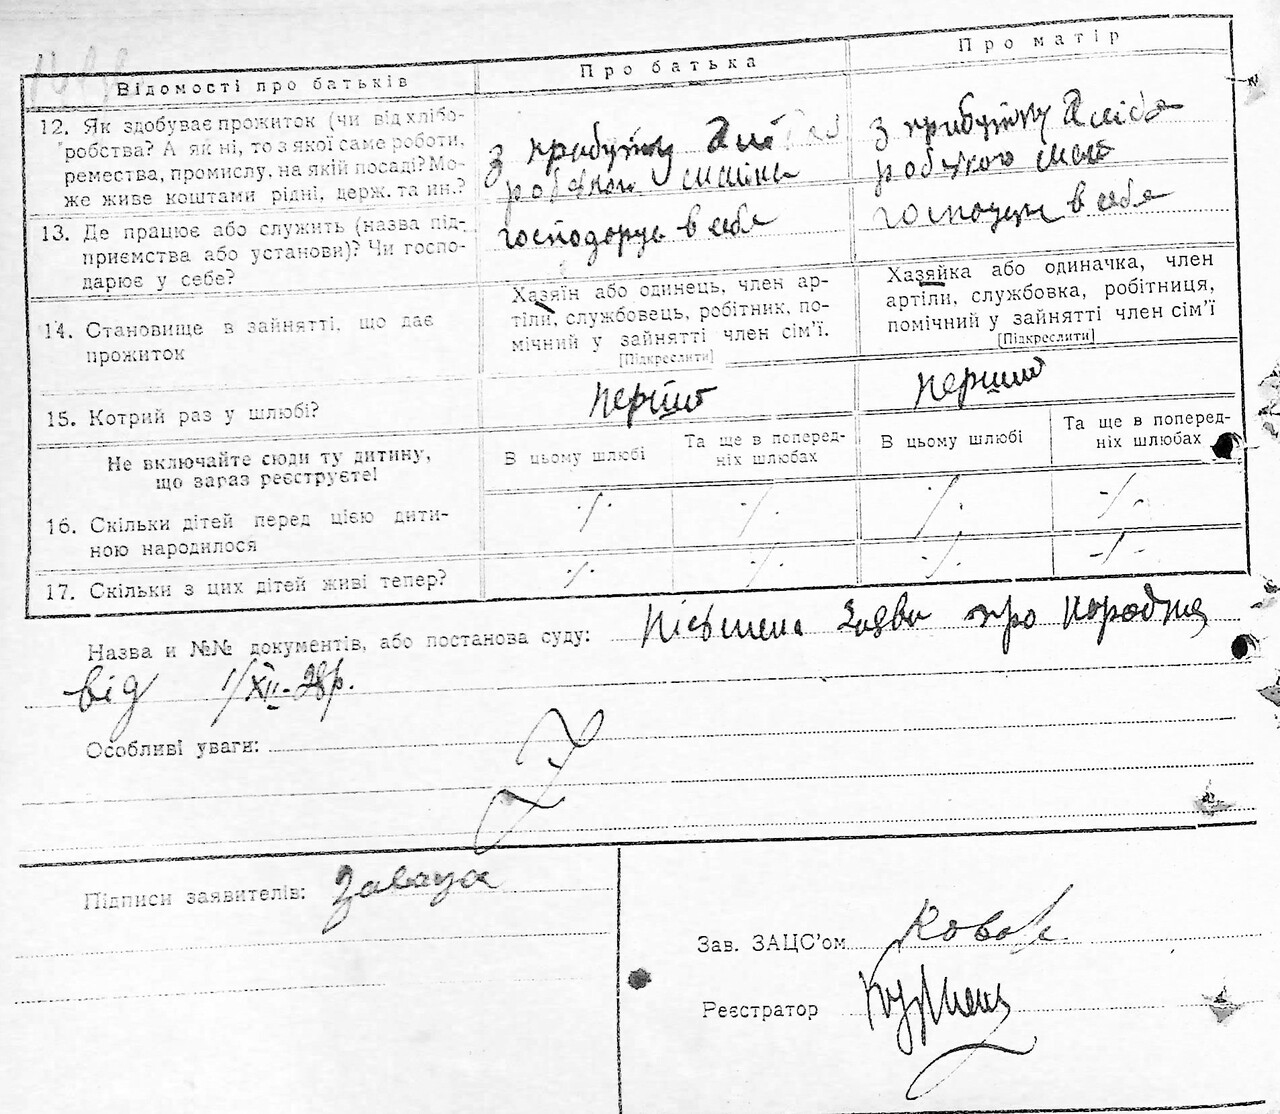 Відомості про батьків
Про батька
Про матір
12. Як здобуває прожиток (чи від хлібо-
робства? А як ні, то з якої саме роботи,
ремества, промислу, на якій посаді? Мо-
же живе коштами рідні, держ. та ин.?
з прибутку
з прибутку
13. Де працює або служить (назва під-
приємства або установи)? Чи госпо-
дарює у себе?
господарує в себе
в себе
14. Становище в зайнятті, що дає
прожиток
Хазяїн або одинець, член ар-
тіли, службовець, робітник, по-
мічний у зайнятті член сім’ї.
[Підкреслити]
Хазяйка або одиначка, член
артіли, службовка, робітниця,
помічний у зайнятті член сім’ї
[Підкреслити]
15. Котрий раз у шлюбі?
перший
перший
Не включайте сюди ту дитину,
що зараз реєструєте!
В цьому шлюбі
Та ще в поперед-
ніх шлюбах
В цьому шлюбі
Та ще в поперед-
ніх шлюбах
16. Скільки дітей перед цією дити-
ною народилося
-/- -/- -/- -/-
17. Скільки з цих дітей живі тепер?
-/- -/- -/- -/-
Назва и №№ документів, або постанова суду: заява про
від 1/XII-28р.
Особливі уваги:
Підписи заявителів:
Зав. ЗАЦС’ом
Реєстратор